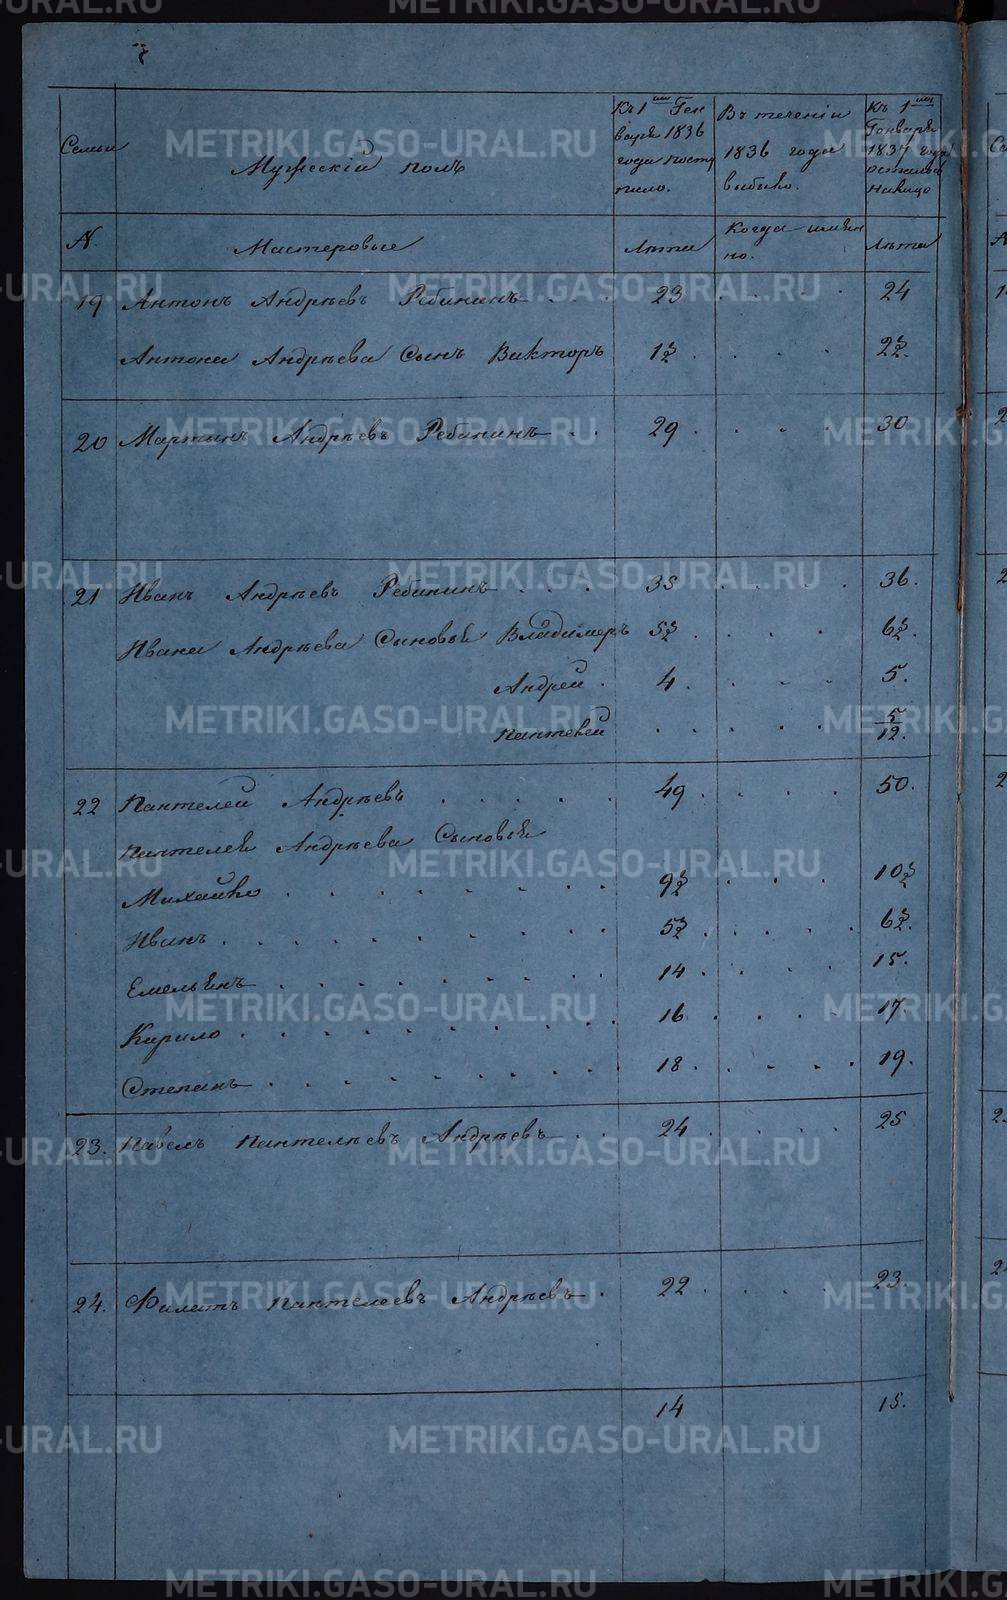 Семьи
Мужескій полъ
Къ 1 ому Ген
варя 1836
года посту
пило.
Въ теченіи
1836 года
выбыло.
Къ 1 ому
Генваря
1837 года
осталось
налицо
N.
Мастеровые
Лѣта
Когда имен
но.
Лѣта
19 Антонъ Андрѣевъ Ребининъ . . . 23 . . . 24
Антона Андрѣева Сынъ Викторъ 1½ . . . 2½.
20 Мартинъ Андрѣевъ Ребининъ . . 29 . . . 30
21 Иванъ Андрѣевъ Ребининъ . . . 35 . . . 36.
Ивана Андрѣева Сыновья Владимеръ 5½ . . . 6½.
Андрей . 4 . . . 5.
Пантелей . . . . 5/12.
22 Пантелей Андрѣевъ . . . . 49 . . . 50.
Пантелея Андрѣева Сыновья
Михайло . . . . . . . 9½ . . . 10½
Иванъ . . . . . . . . 5½ . . . 6½.
Емельянъ . . . . . . . 14 . . . 15.
Кирило . . . . . . . . 16 . . . 17.
Степанъ . . . . . . . . 18 . . . 19.
23. Павелъ Пантелѣевъ Андрѣевъ . . 24 . . . 25
24. Филатъ Пантелеевъ Андрѣевъ . 22 . . . 23.
14 15.
METRIKI.GASO-URAL.RU